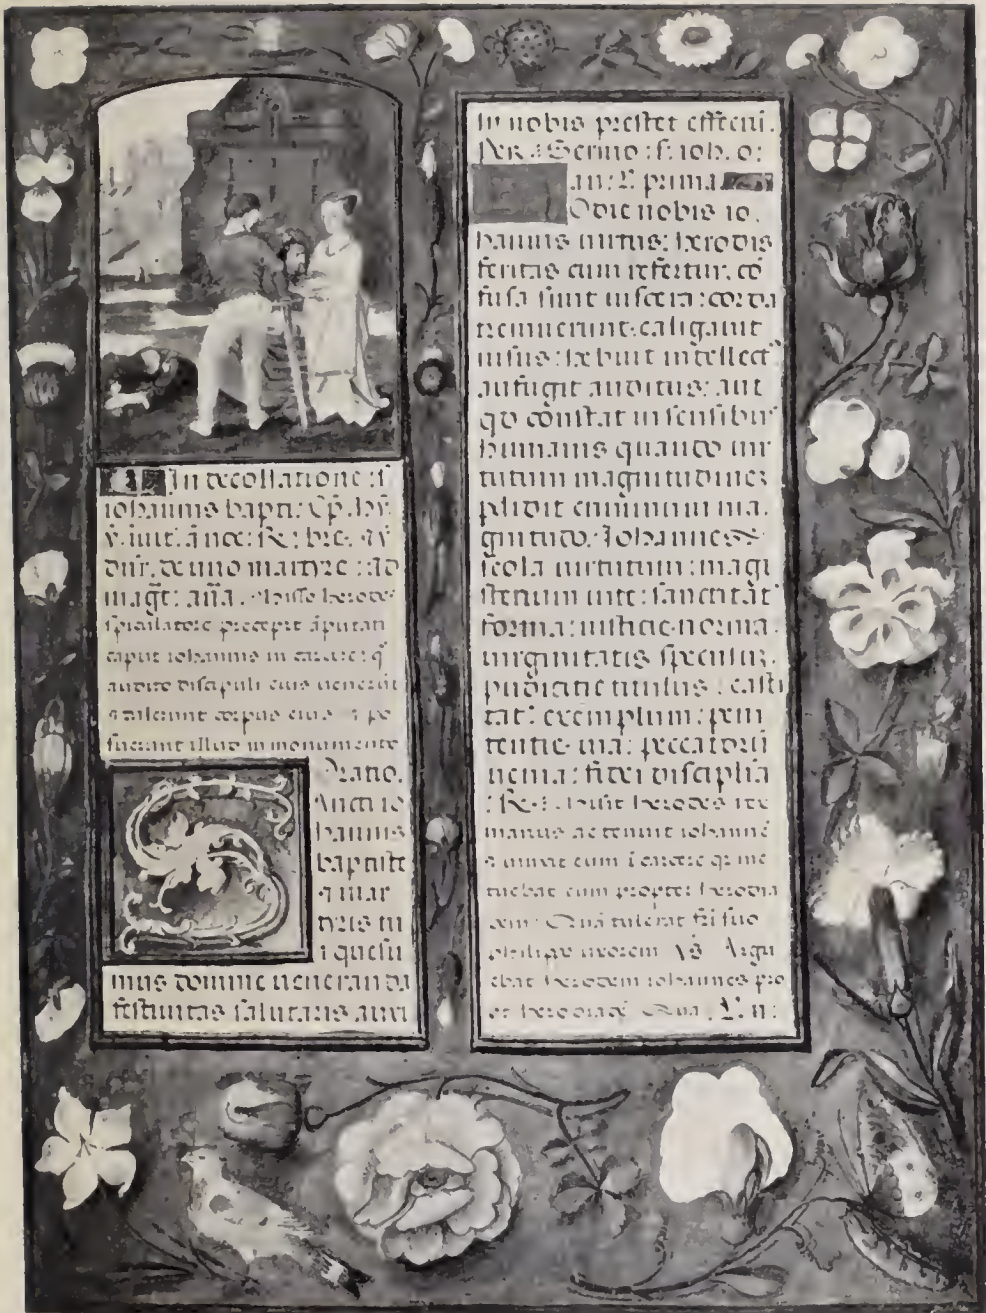 In decollatione: s
iohannis bapti: Cp. hy.
v. inuit. a noct: R: bre. a y
dur. de uno martyre: ad
magt: aña. Misso herodes
spiculatore precepit aputari
caput iohannis in carcere: q
audito discipuli eius uenerūt
tulerunt corpus eius po
suerunt illud in monumento
Oratio.
ancti io
hannis
baptiste
q mar
tyris tu
i quesu
mus domine ueneranda
festiuitas salutaris auxi
In nobis prestet effectū.
Sermo: s: ioh. o:
an: L prima
Odie nobis io.
hannis uirtus: herodis
feritas cum refertur. cō
fusa sunt uiscera: corda
tremuerunt. caligauit
uisus: hebuit intellect
aufugit auditus: aut
qd cōstat in sensibus
humanis quando uir
tutum magnitudinē
plidit criminum ma.
gnitudo. Iohannes
scola uirtutum: magi
sterium uite: sanctitat
forma: iusticie norma.
uirginitatis speculū.
pudicitie titulus: casti
tat: exemplum: peni
tentie uia: peccatorū
uenia: fidei disciplīa
R. Misit herodes rex
manus ac tenuit iohannē
uinxit eum ī carcere qz me
tuebat eum propter herodia
dem Quā tulerat frī suo
philipo uxorem VS Argu
ebat herodem iohannes pro
herodiadē Quā